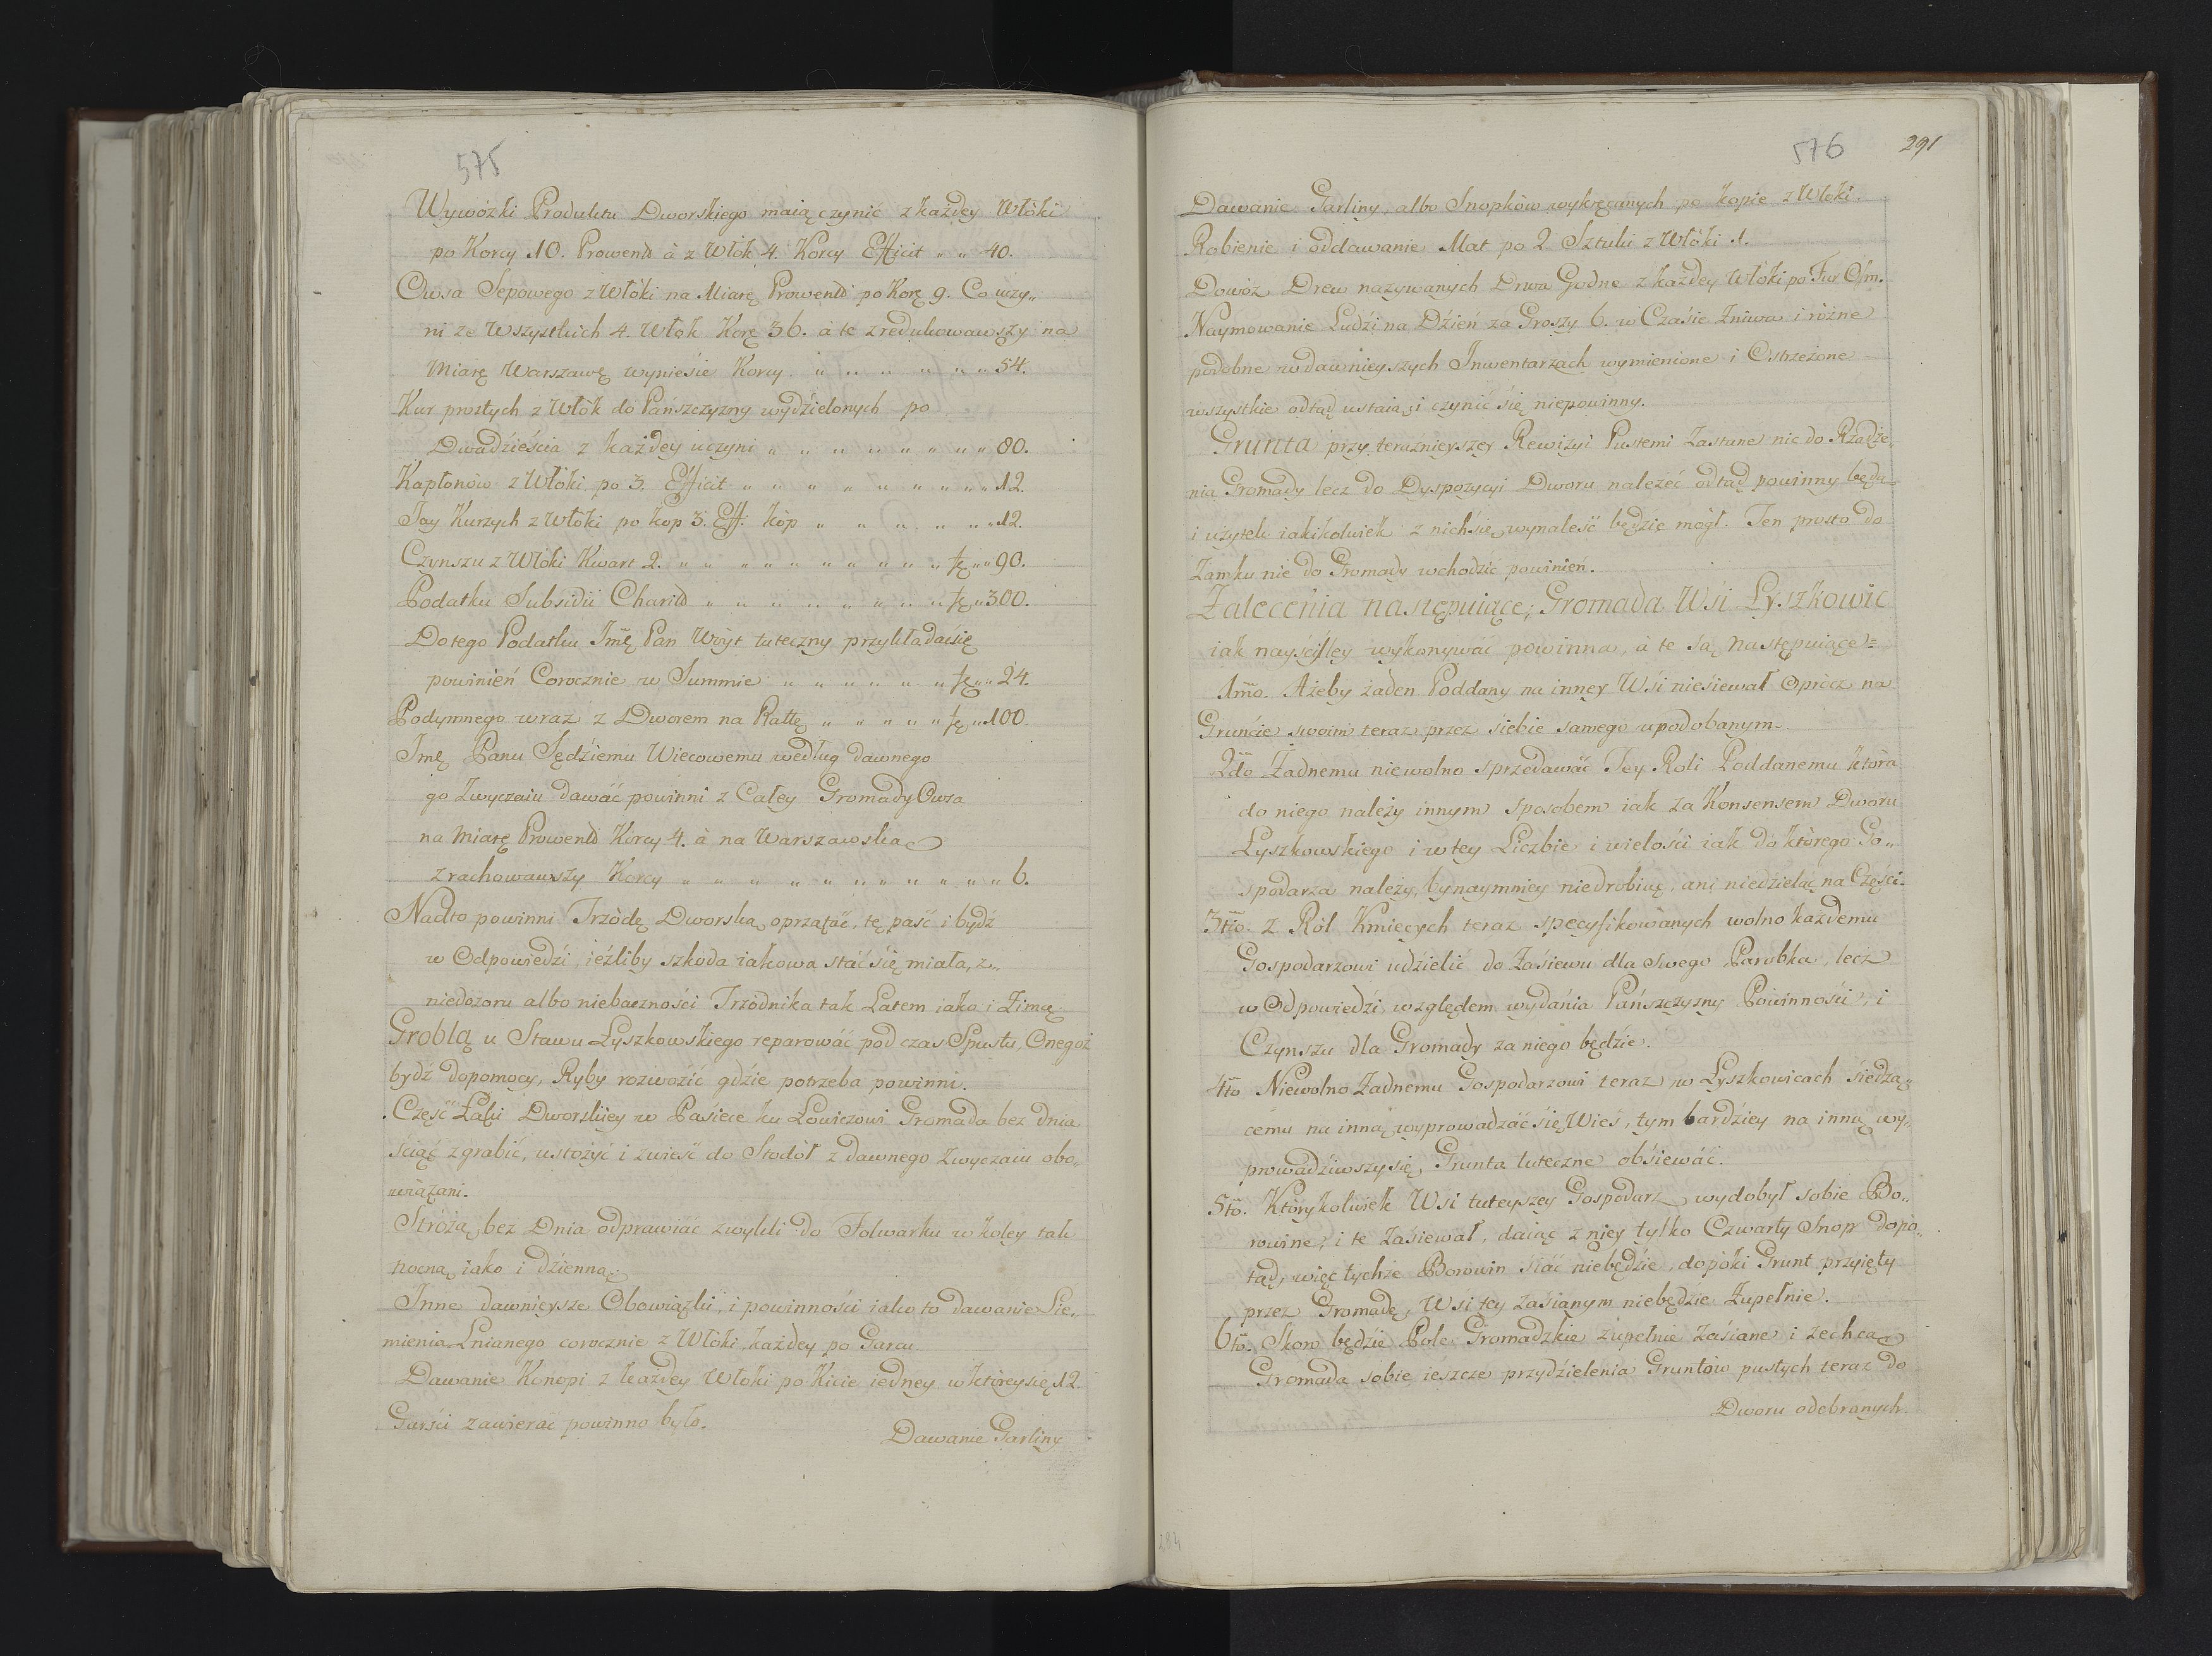 575
Wywózki Produktu Dworskiego maią czynić z każdey Włóki
po Korcy 10. Prowent à z Włók 4. Korcy Efficit „ „ 40.
Owsa Sepowego z Włóki na Miarę Prowent po Korę 9. Co uczy„
ni ze Wszystkich 4. Włok Korę 36. a te zredukowawszy na
Miarę Warszawę wyniesie Korcy „ „ „ „ „ „ 54.
Kur prostych z Włók do Pańszczyzny wydzielonych po
Dwadzieścia z każdey uczyni „ „ „ „ „ „ „ „ 80.
Kapłonów z Włóki po 3. Efficit „ „ „ „ „ „ „ „ „ 12.
Jay Kurzych z Włóki po kop 3. Eff. kóp „ „ „ „ „ „ 12.
Czynszu z Włóki Kwart 2. „ „ „ „ „ „ „ „ „ „ „ 90.
Podatku Subsidii Charit „ „ „ „ „ „ „ „ „ 300.
Do tego Podatku Imę Pan Wóyt tuteczny przykładać się
powinień Corocznie w Summie „ „ „ „ „ „ „ „ 24.
Podymnego wraz z Dworem na Rattę „ „ „ „ „ „ 100.
Imę Panu Sędziemu Wiecowemu według dawnego
go Zwyczaiu dawać powinni z Całey Gromady Owsa
na Miarę Prowent Korcy 4. à na Warszawską
zrachowawszy Korcy „ „ „ „ „ „ „ „ „ „ 6.
Nadto powinni Trzódę Dworską oprzątać, tę paść i bydź
w Odpowiedzi, ieźliby szkoda iakowa stać się miała, z„
niedozoru albo niebaczności Trzodnika tak Latem iako i Zimą.
Groblą u Stawu Łyszkowskiego reparować pod czas Spustu, Onegoż
bydź dopomocy, Ryby rozwozić gdzie potrzeba powinni.
Część Łąki Dworskiey w Pasiece ku Łowiczowi Gromada bez dnia
ściąć zgrabić, ustożyć i zwieść do Stodół z dawnego Zwyczaiu obo„
wiązani.
Stróżą bez Dnia odprawiać zwykli do Folwarku w koley tak
nocną iako i dzienną.
Inne dawnieysze Obowiązki, i powinności iako to dawanie Sie„
mienia Lnianego corocznie z Włóki każdey po Garcu.
Dawanie Konopi z każdey Włoki po Kicie iedney w którey się 12.
Garści zawierać powinno było.
Dawanie Garliny
576
291
Dawanie Garliny, albo Snopków wykręcanych po kopie z Włoki.
Robienie i oddawanie Mat po 2 Sztuki z Włóki 1.
Dowóz Drew nazywanych Drwa Godne z każdey Włóki po Fur Ośm.
Naymowanie Ludzi na Dzień za Groszy 6. w Czasie Żniwa i różne
podobne w dawnieyszych Inwentarzach wymienione i Ostrzeżone
wszystkie odtąd ustaią, i czynić się niepowinny.
Grunta przy teraznieyszey Rewizyi Pustemi Zastane nie do Rządze„
nia Gromady lecz do Dyspozycyi Dworu należeć odtąd powinny będą
i użytek iakikolwiek z nich się wynaleść będzie mógł. Ten prosto do
Zamku nie do Gromady wchodzić powinień.
Zalecenia następuiące; Gromada Wsi Łyszkowic
iak nayściśley wykonywać powinna, à te są Następuiące=
1mo. Ażeby żaden Poddany na inney Wsi niesiewał Oprócz na
Gruńcie swoim teraz przez siebie samego upodobanym.
2do Żadnemu niewolno sprzedawać Tey Roli Poddanemu która
do niego należy innym sposobem iak za Konsensem Dworu
Łyszkowskiego i w tey Liczbie i wielości iak do którego Go„
spodarza należy, bynaymniey niedrobiąc, ani niedzieląc na Części.
3tio. z Ról Kmiecych teraz specyfikowanych wolno każdemu
Gospodarzowi udzielić do Zasiewu dla swego Parobka, lecz
w Odpowiedzi względem wydania Pańszczyzny Powinności, i
Czynszu dla Gromady za niego będzie.
4to Niewolno Żadnemu Gospodarzowi teraz w Łyszkowicach siedzą„
cemu na inną wyprowadzać się Wieś, tym bardziey na inną wy„
prowadziwszy się, Grunta tuteczne obsiewać.
5to. Którykolwiek Wsi tuteyszey Gospodarz wydobył sobie Bo„
rowine, i te Zasiewał, daiąc z niey tylko Czwarty Snop dopo„
tąd, więc tychże Borowin siać niebędzie, dopóki Grunt przyięty
przez Gromadę, Wsi tey zasianym niebędzie Zupełnie.
6to. Skoro będzie Pole Gromadzkie zupełnie Zasiane i zechcą
Gromada sobie ieszcze przydzielenia Gruntów pustych teraz do
Dworu odebranych.
284